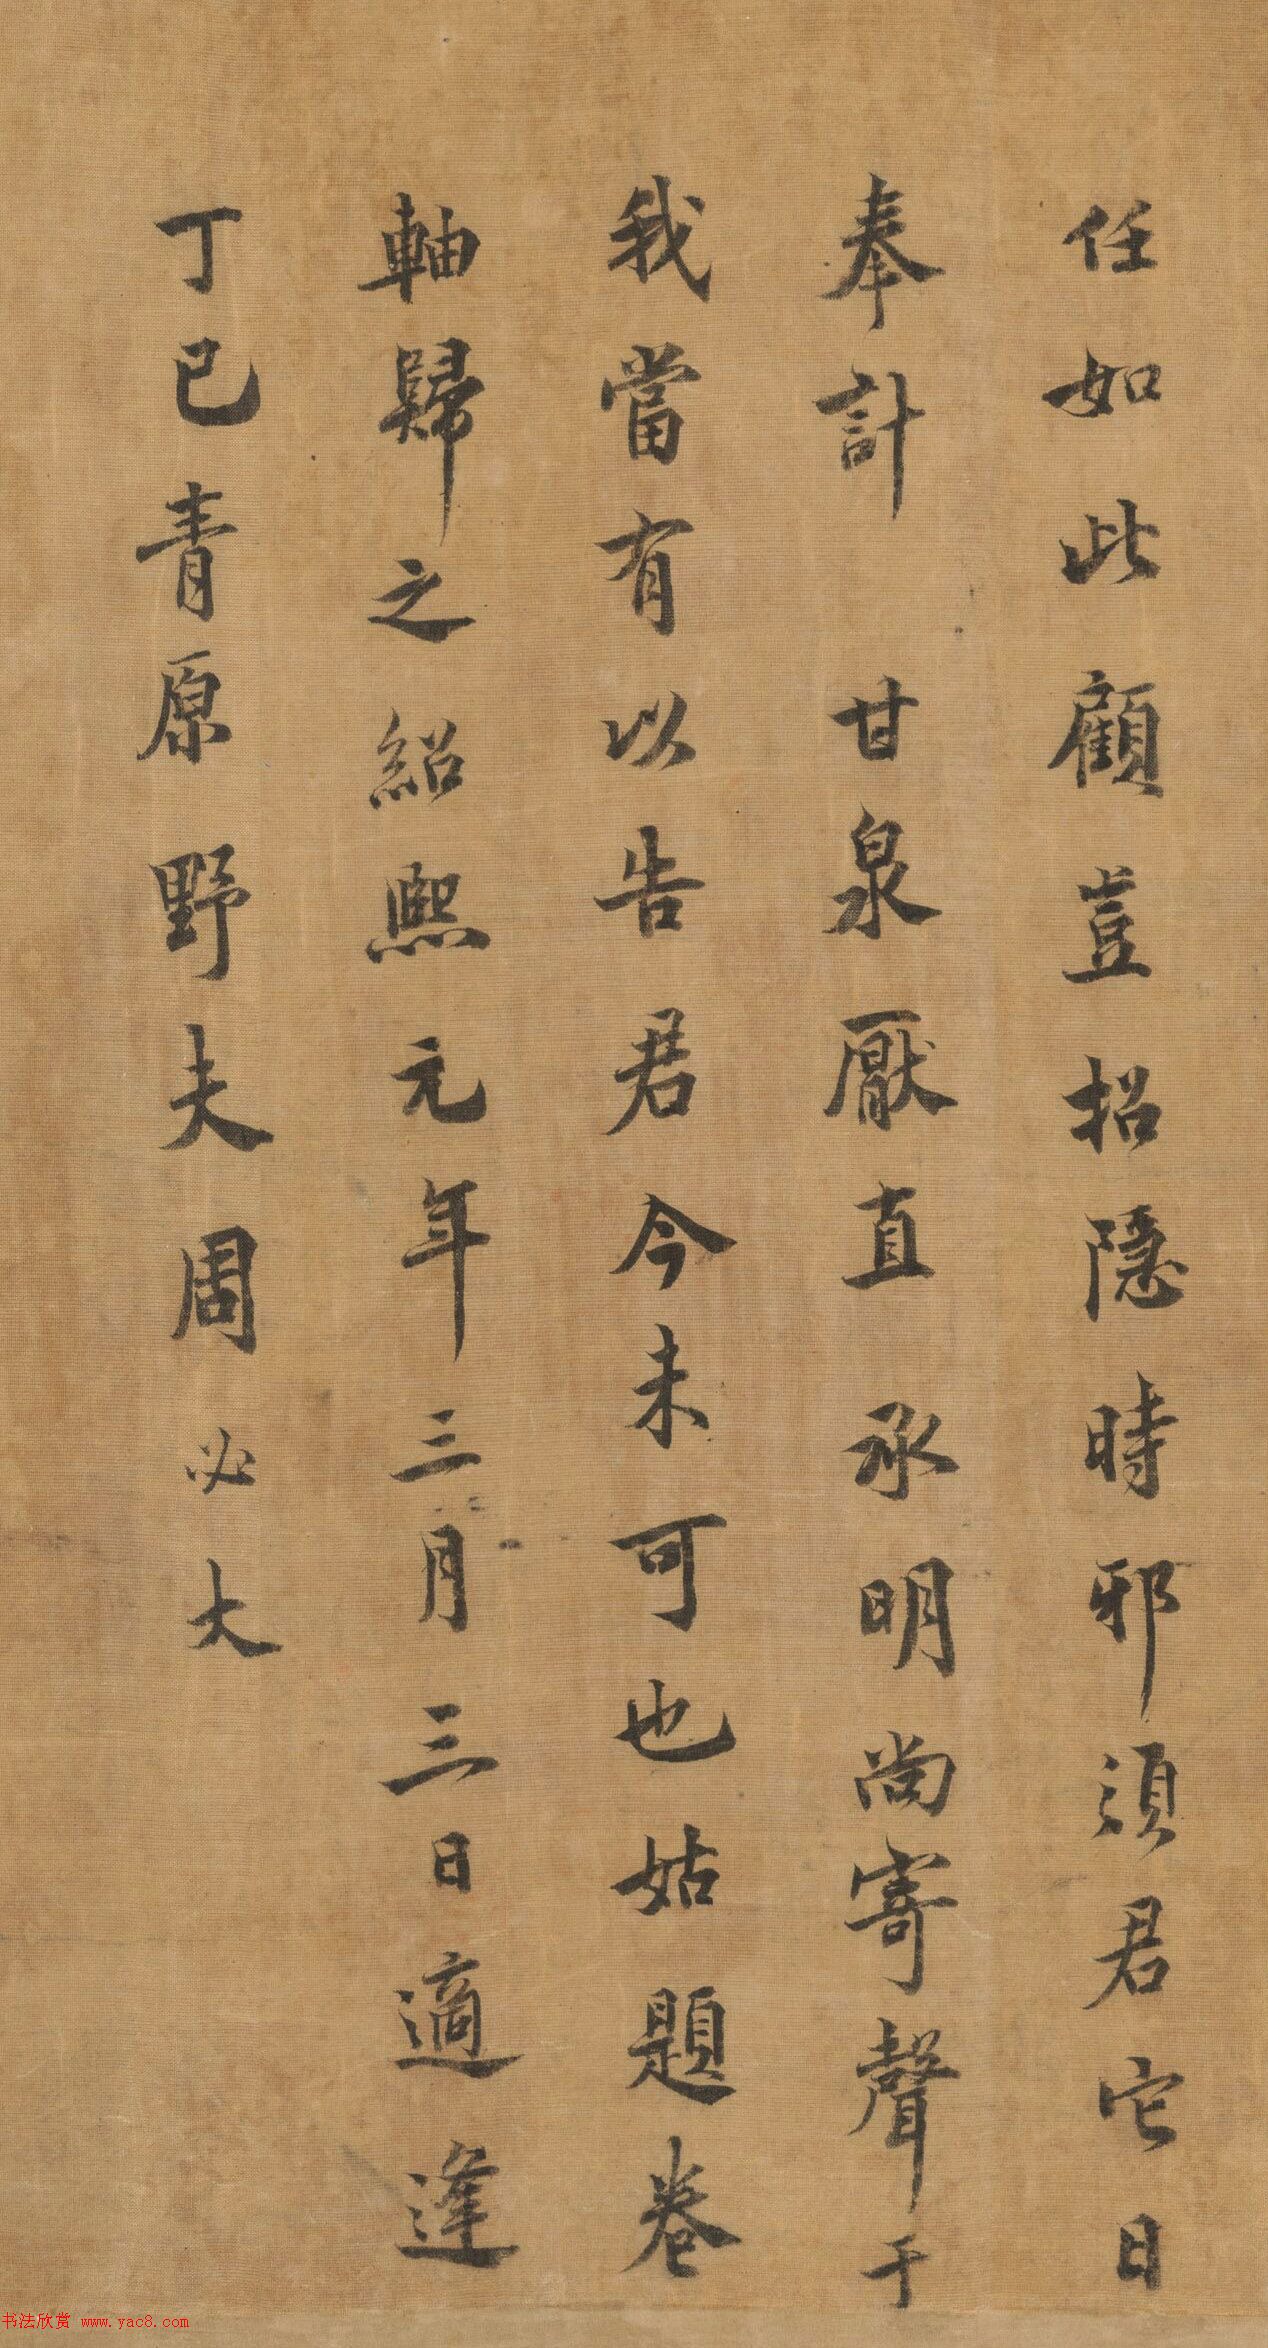 任如此顧豈招隱時邪須君它日
奉計 甘泉厭直承明尚寄聲于
我當有以告君今未可也姑題卷
軸歸之紹熙元年三月三日適逢
丁巳青原野夫周必大
书法欣赏 www.yac8.com